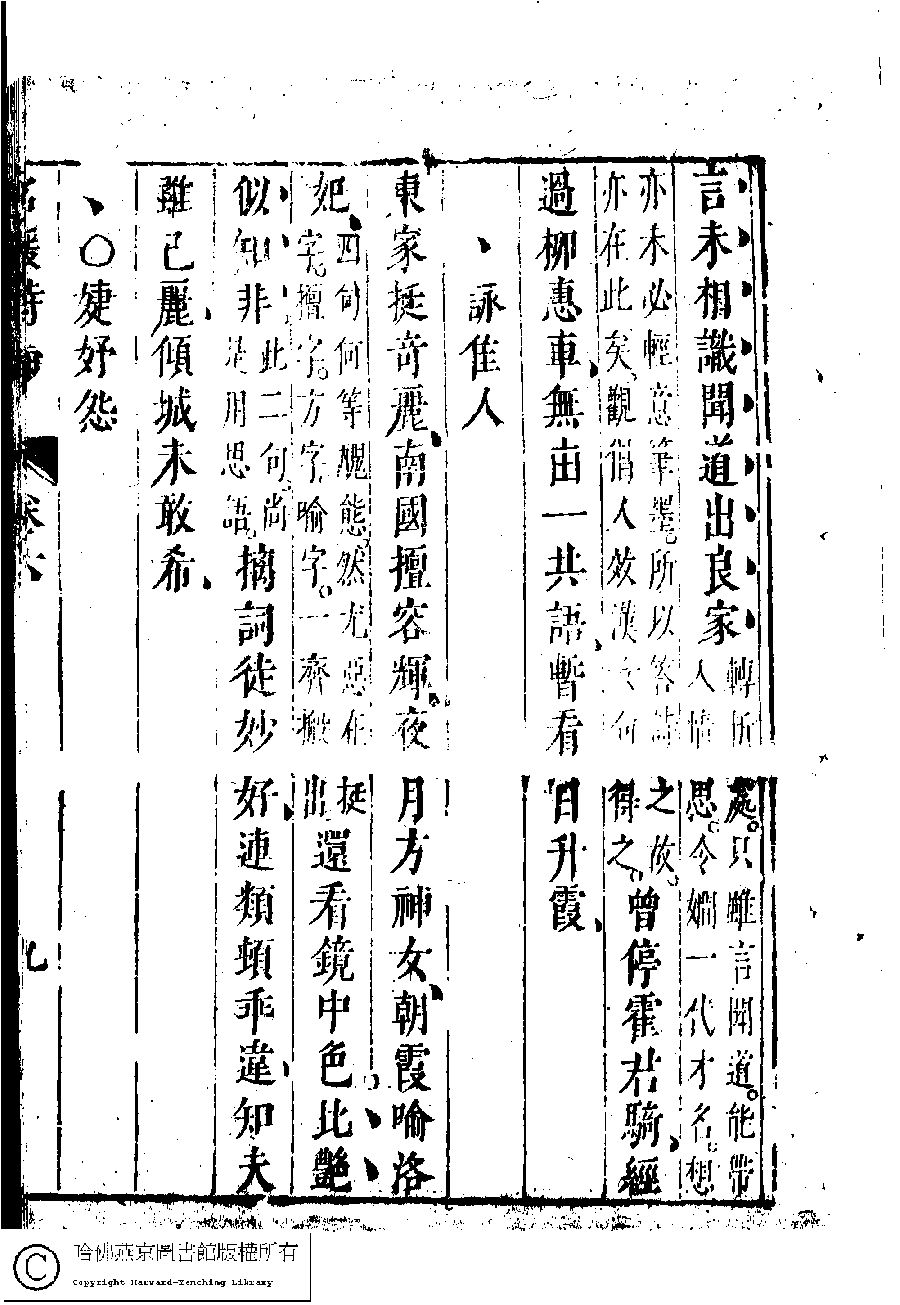 言未相識聞道出良家轉折處。只雖言聞道。能帶
人情思。令嫺一代才名。想
亦未必輕意筆墨。所以答詩之故。
亦在此矣、觀倡人效漢句得之。曾停霍君騎、經
過柳惠車、無由一共語、暫看日升霞、
詠佳人
東家挺奇麗、南國擅容輝。夜月方神女、朝霞喻洛
妃、四句何等醜態。然尤惡在挺
字。擅字。方字。喻字。一齊搬出還看鏡中色。比艷
似知非、此二句尚
是用思語。摛詞徒妙好、連類頓乖違、知夫
雖已麗、傾城未敢希、
○婕妤怨
名媛詩歸 卷六 九
哈佛燕京圖書館版權所有
Copyright Harvard-Yenching Library